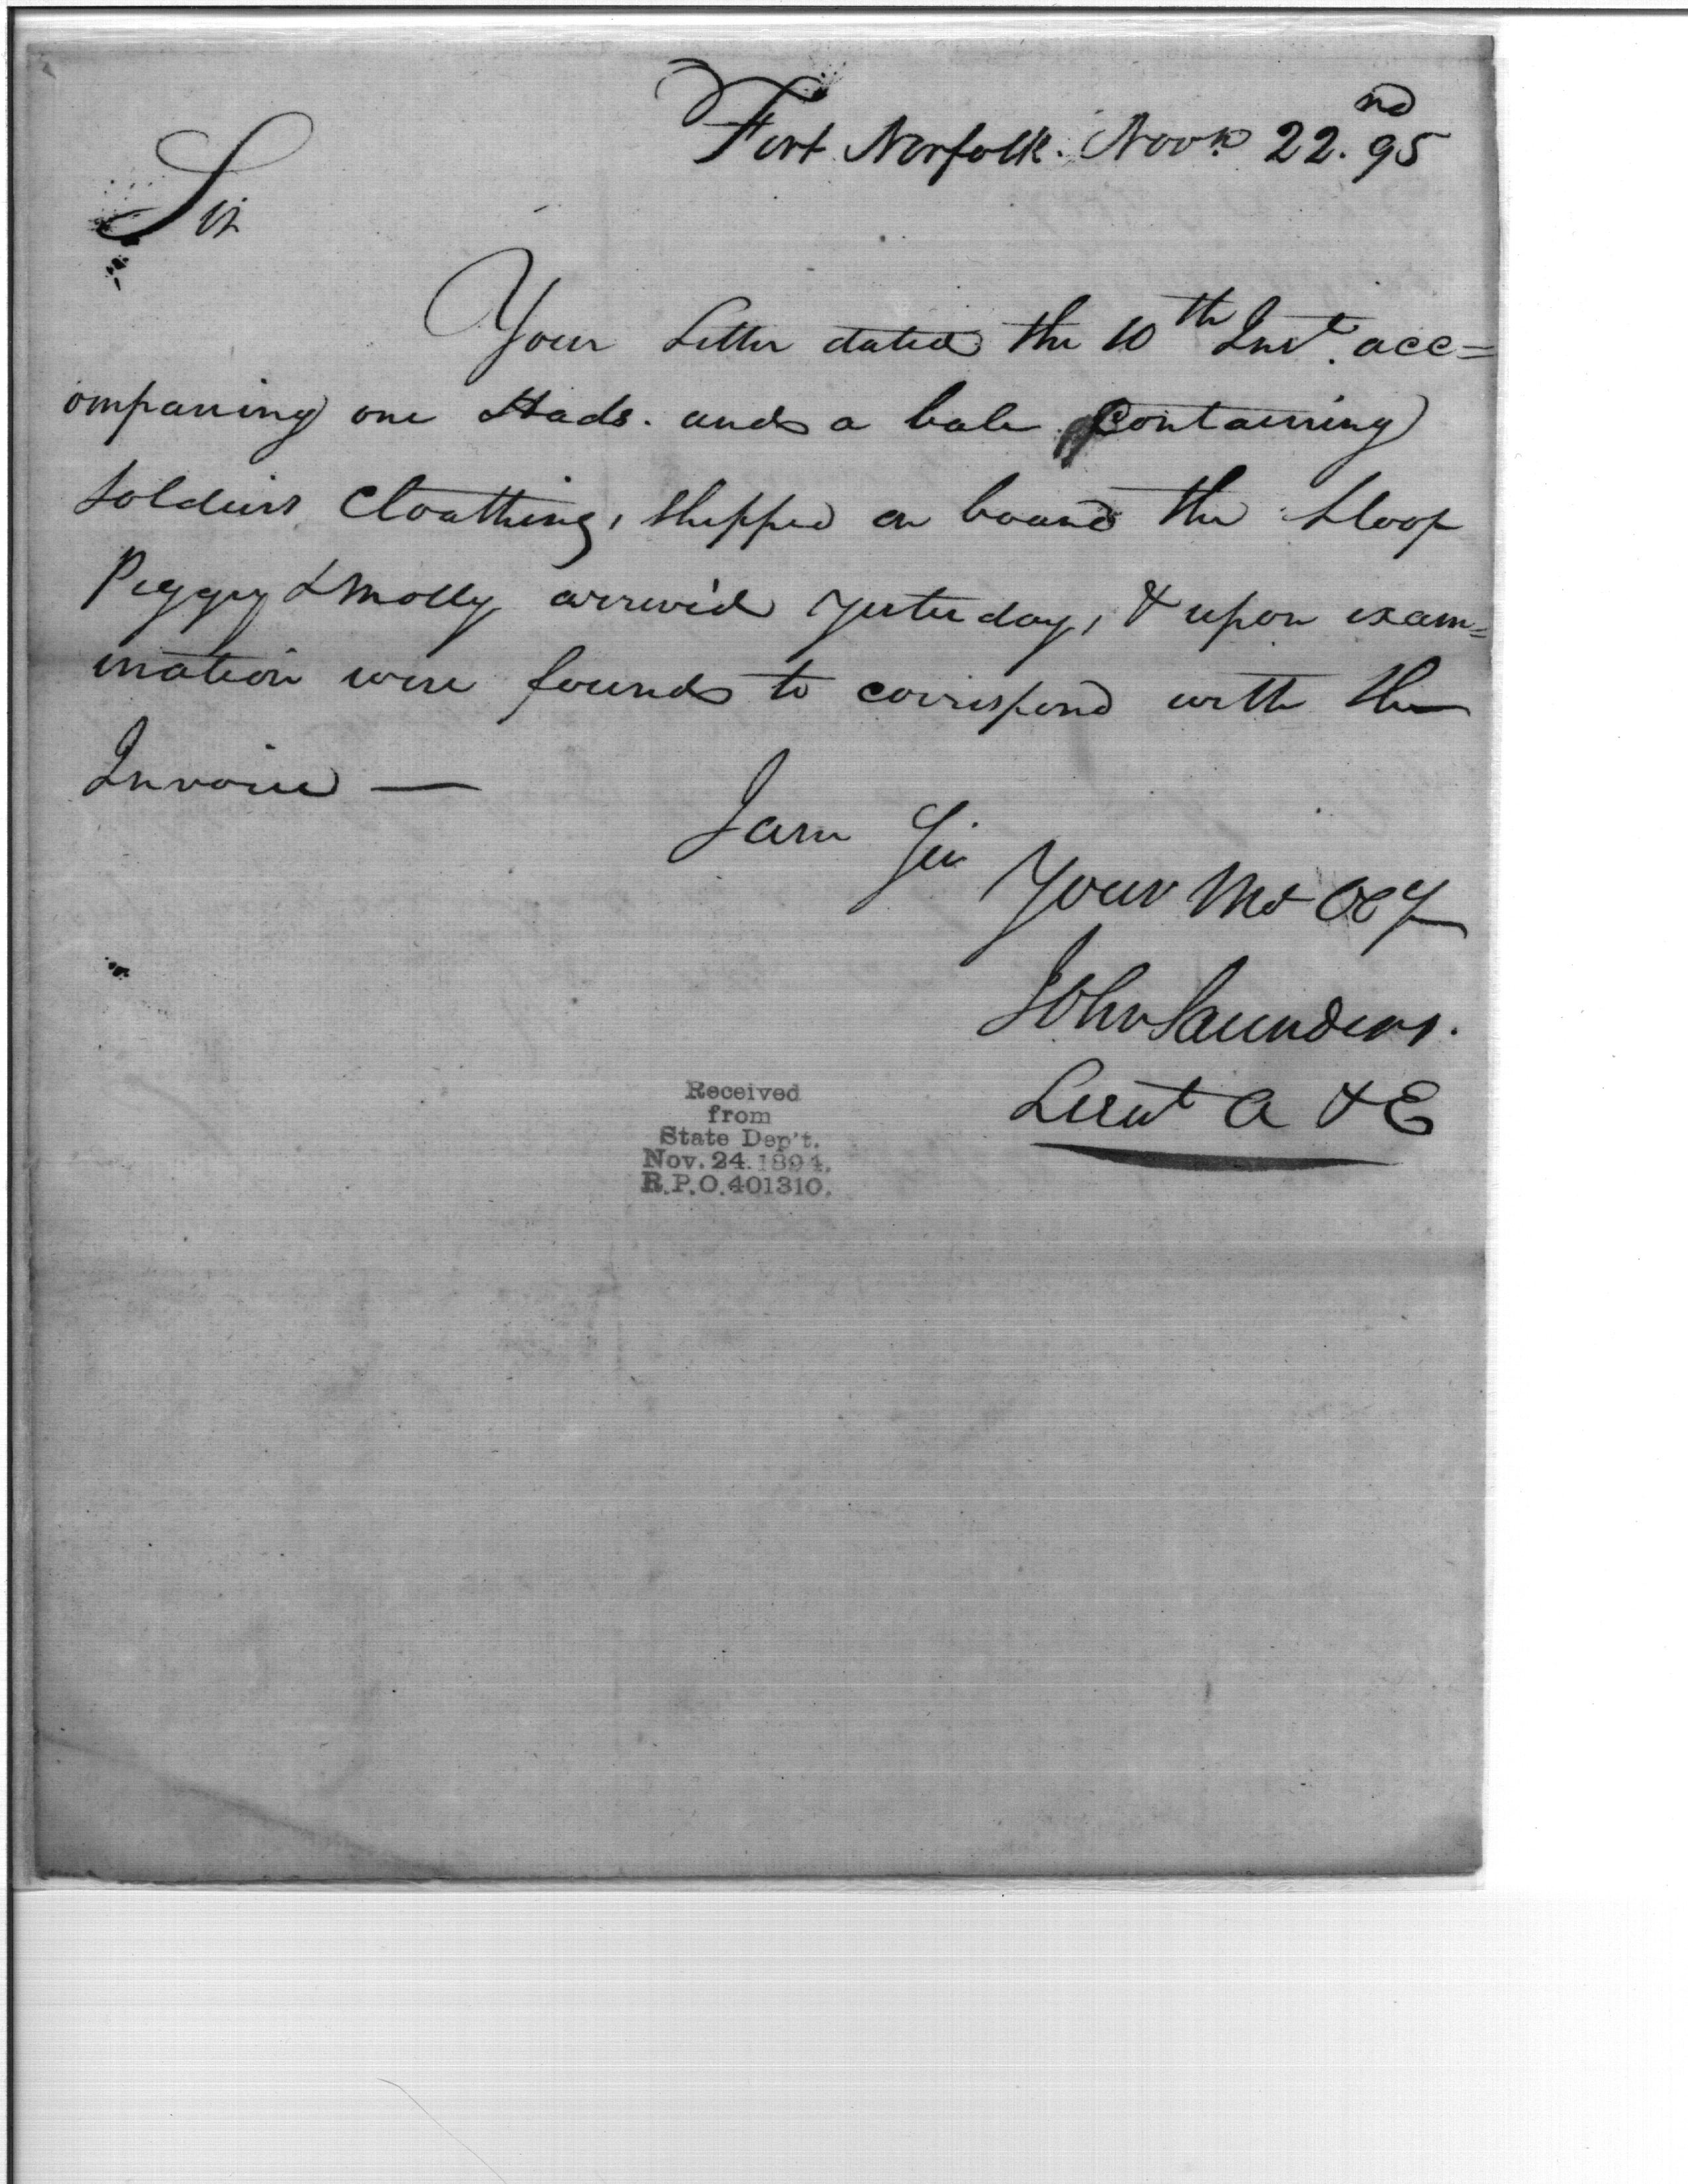 Fort Norfolk. Novr. 22.nd 95
Sir
Your Letter dated the 10th Inst. acc=
ompaning one Hads. and a bale Containing
Soldiers Cloathing, Shipped on board the Sloop
Peggy & Molly arrived yesterday, & upon exam=
ination were found to correspond with the
Invoice —
I am Sir
Your Mt Obt
John Saunders.
Lieut A & E
Received
from
State Dep't.
Nov. 24. 1894.
R.P.O. 401310.